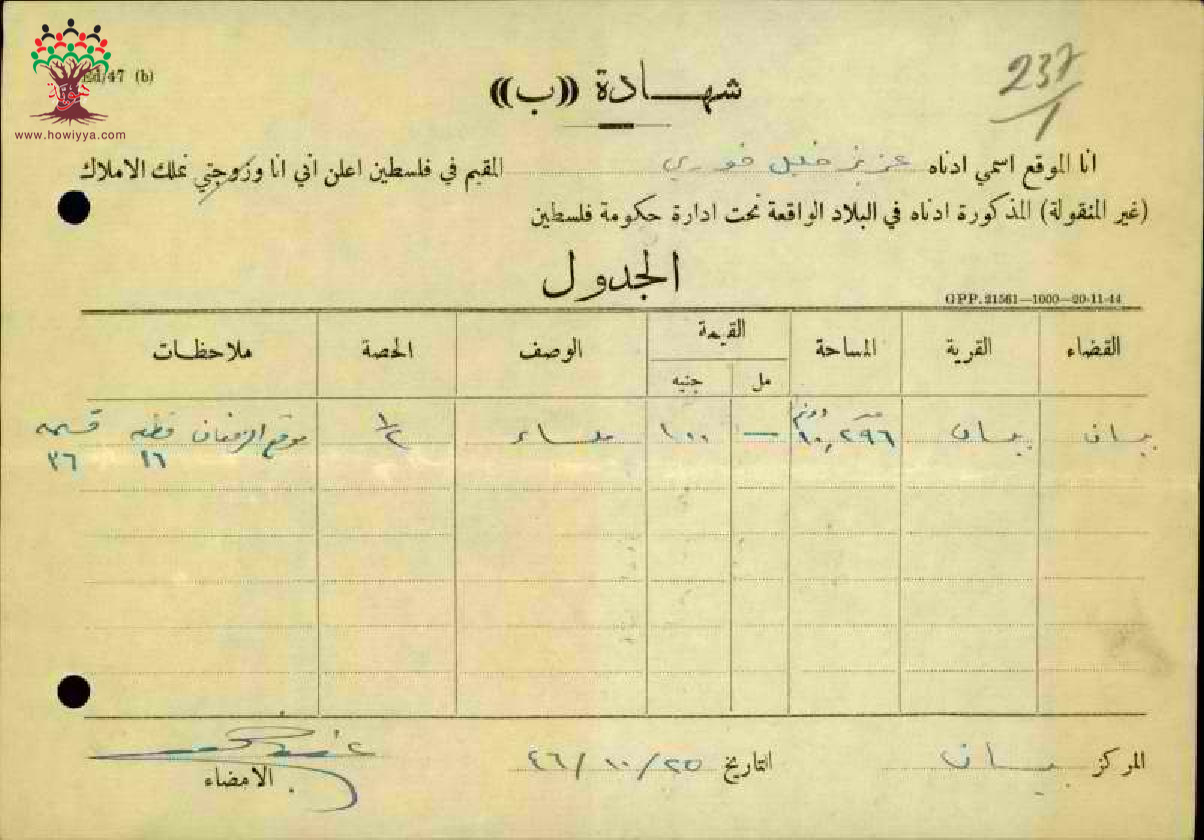 Ed/47 (b)
www.howiyya.com
شهادة «ب»
237/1
انا الموقع اسمي ادناه عزيز خليل خوري المقيم في فلسطين اعلن اني انا وزوجتي نملك الاملاك
(غير المنقولة) المذكورة ادناه في البلاد الواقعة تحت ادارة حكومة فلسطين
الجدول
GPP. 21561—1000—20-11-44
القضاء القرية المساحة القيمة الوصف الحصة ملاحظات
مل جنيه
بيسان بيسان متر دونم ١٠,٢٩٦ — ١٠٠ ١/٢ موقع قطعه قسيمه
١٦ ٣٦
المركز بيسان التاريخ ٢٥/١٠/٤٦
الامضاء